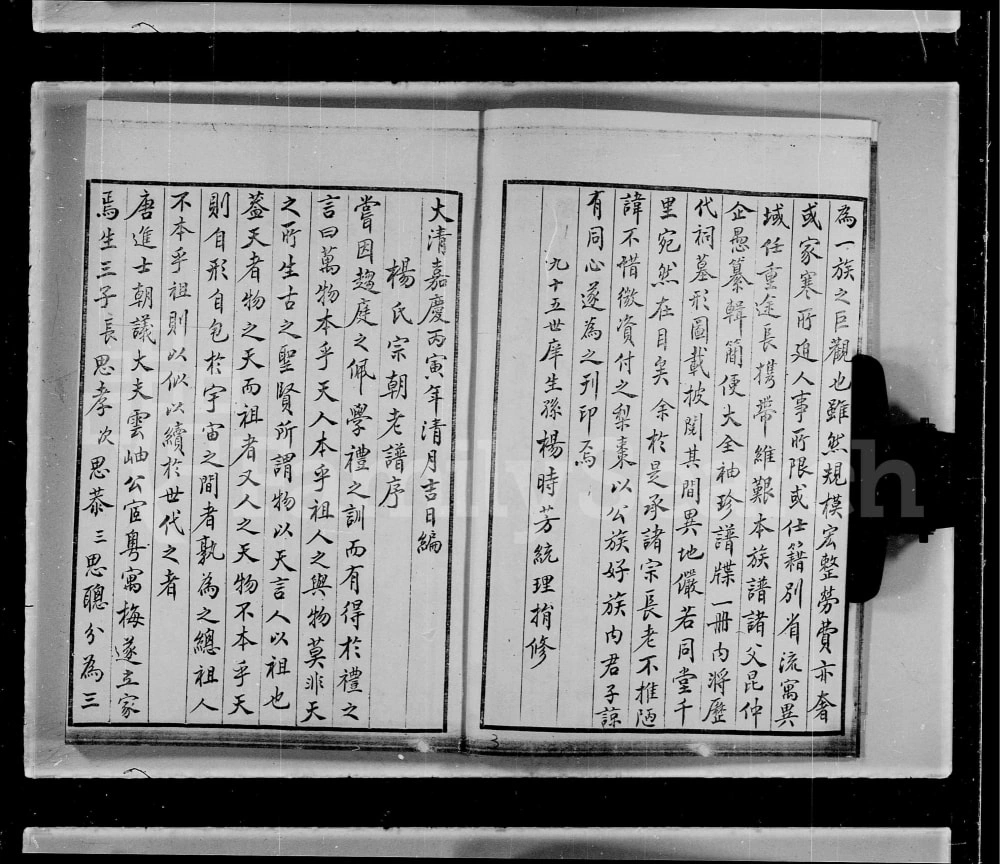 為一族之巨觀也雖然規模宏整勞費亦奢
或家寒所迫人事所限或仕籍別省流寓異
域任重途長攜帶維艱本族譜諸父昆仲
企愚纂輯簡便大全袖珍譜牒一冊內將歷
代祠墓形圖載披閱其間異地儼若同堂千
里宛然在目矣余於是承諸宗長老不推陋
諱不惜微資付之梨棗以公族好族內君子諒
有同心遂為之刊印焉
九十五世庠生孫楊時芳統理捐修
大清嘉慶丙寅年清月吉日編
楊氏宗朝老譜序
嘗因趨庭之佩學禮之訓而有得於禮之
言曰萬物本乎天人本乎祖人之與物莫非天
之所生古之聖賢所謂物以天言人以祖也
蓋天者物之天而祖者又人之天物不本乎天
則自形自色於宇宙之間者孰為之總祖人
不本乎祖則以似以續於世代之者
唐進士朝議大夫雲岫公宦粵寓梅遂立家
焉生三子長思孝次思恭三思聰分為三
3
FamilySearch